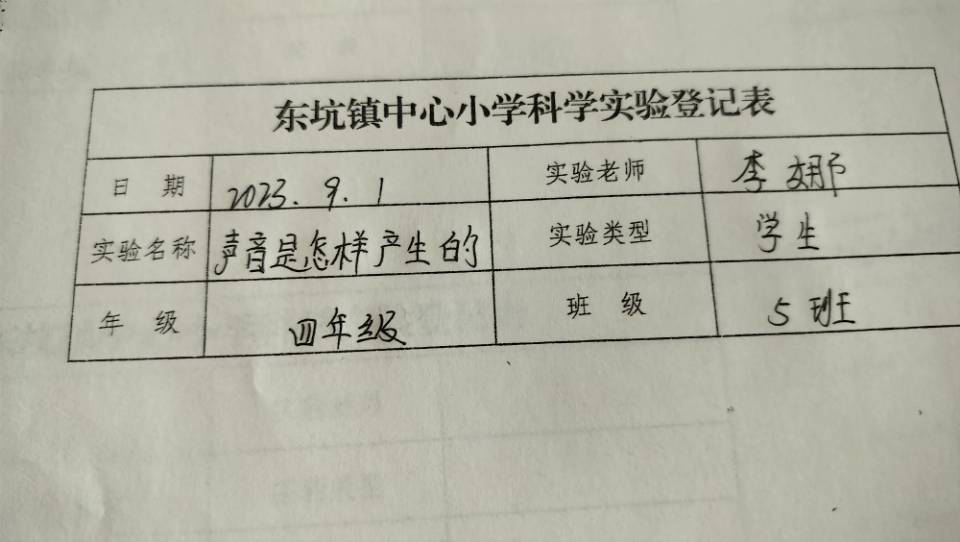 东坑镇中心小学科学实验登记表
日 期 2023.9.1 实验老师 李娜
实验名称 声音是怎样产生的 实验类型 学生
年 级 四年级 班 级 5班